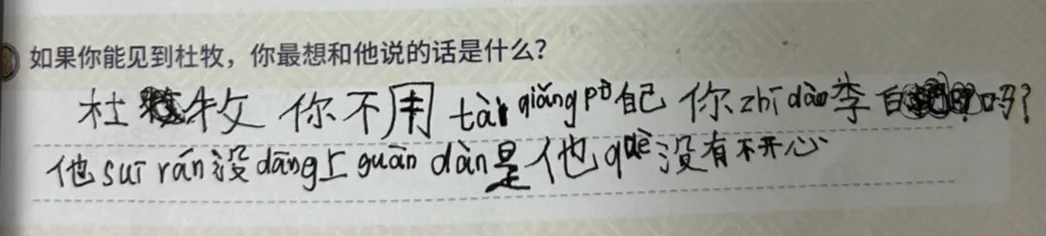 如果你能见到杜牧，你最想和他说的话是什么？
杜牧 你不用tài qiǎng pò自己 你zhī dào李白吗？
他suī rán没dāng上guān dàn是他què没有不开心